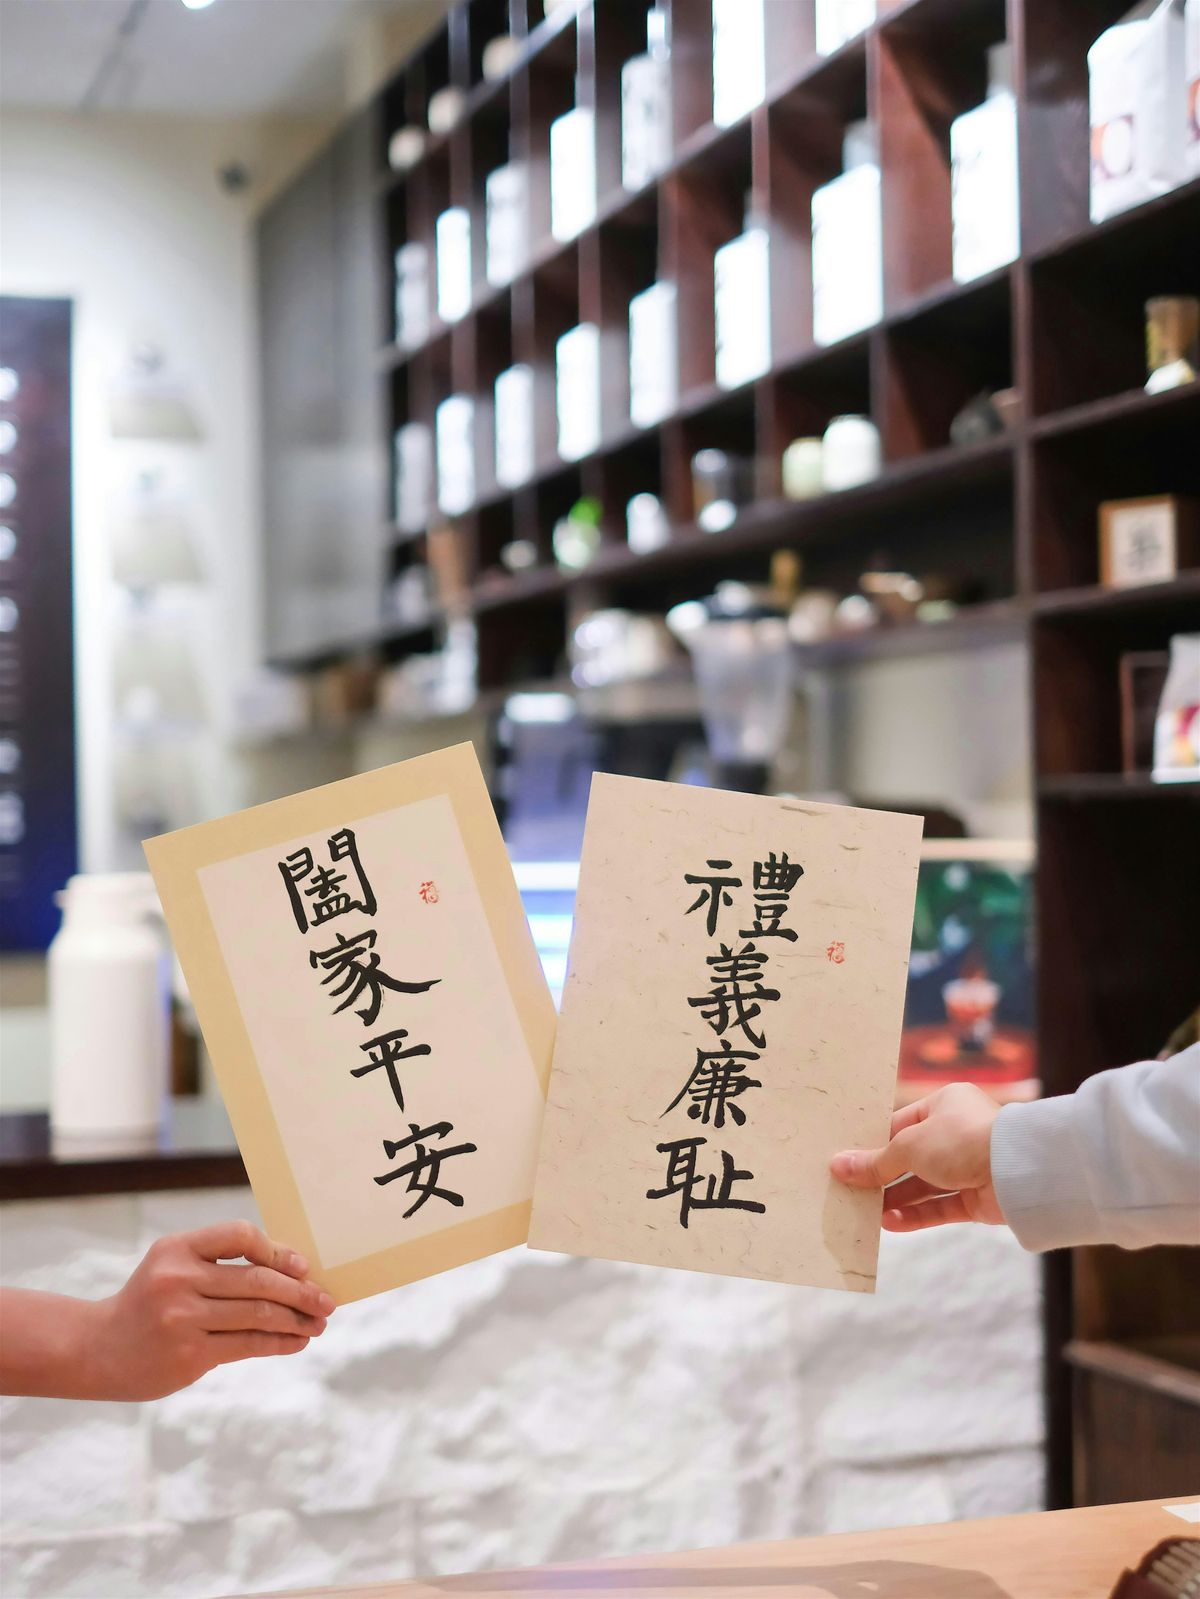 闔家平安
福
禮義廉耻
福